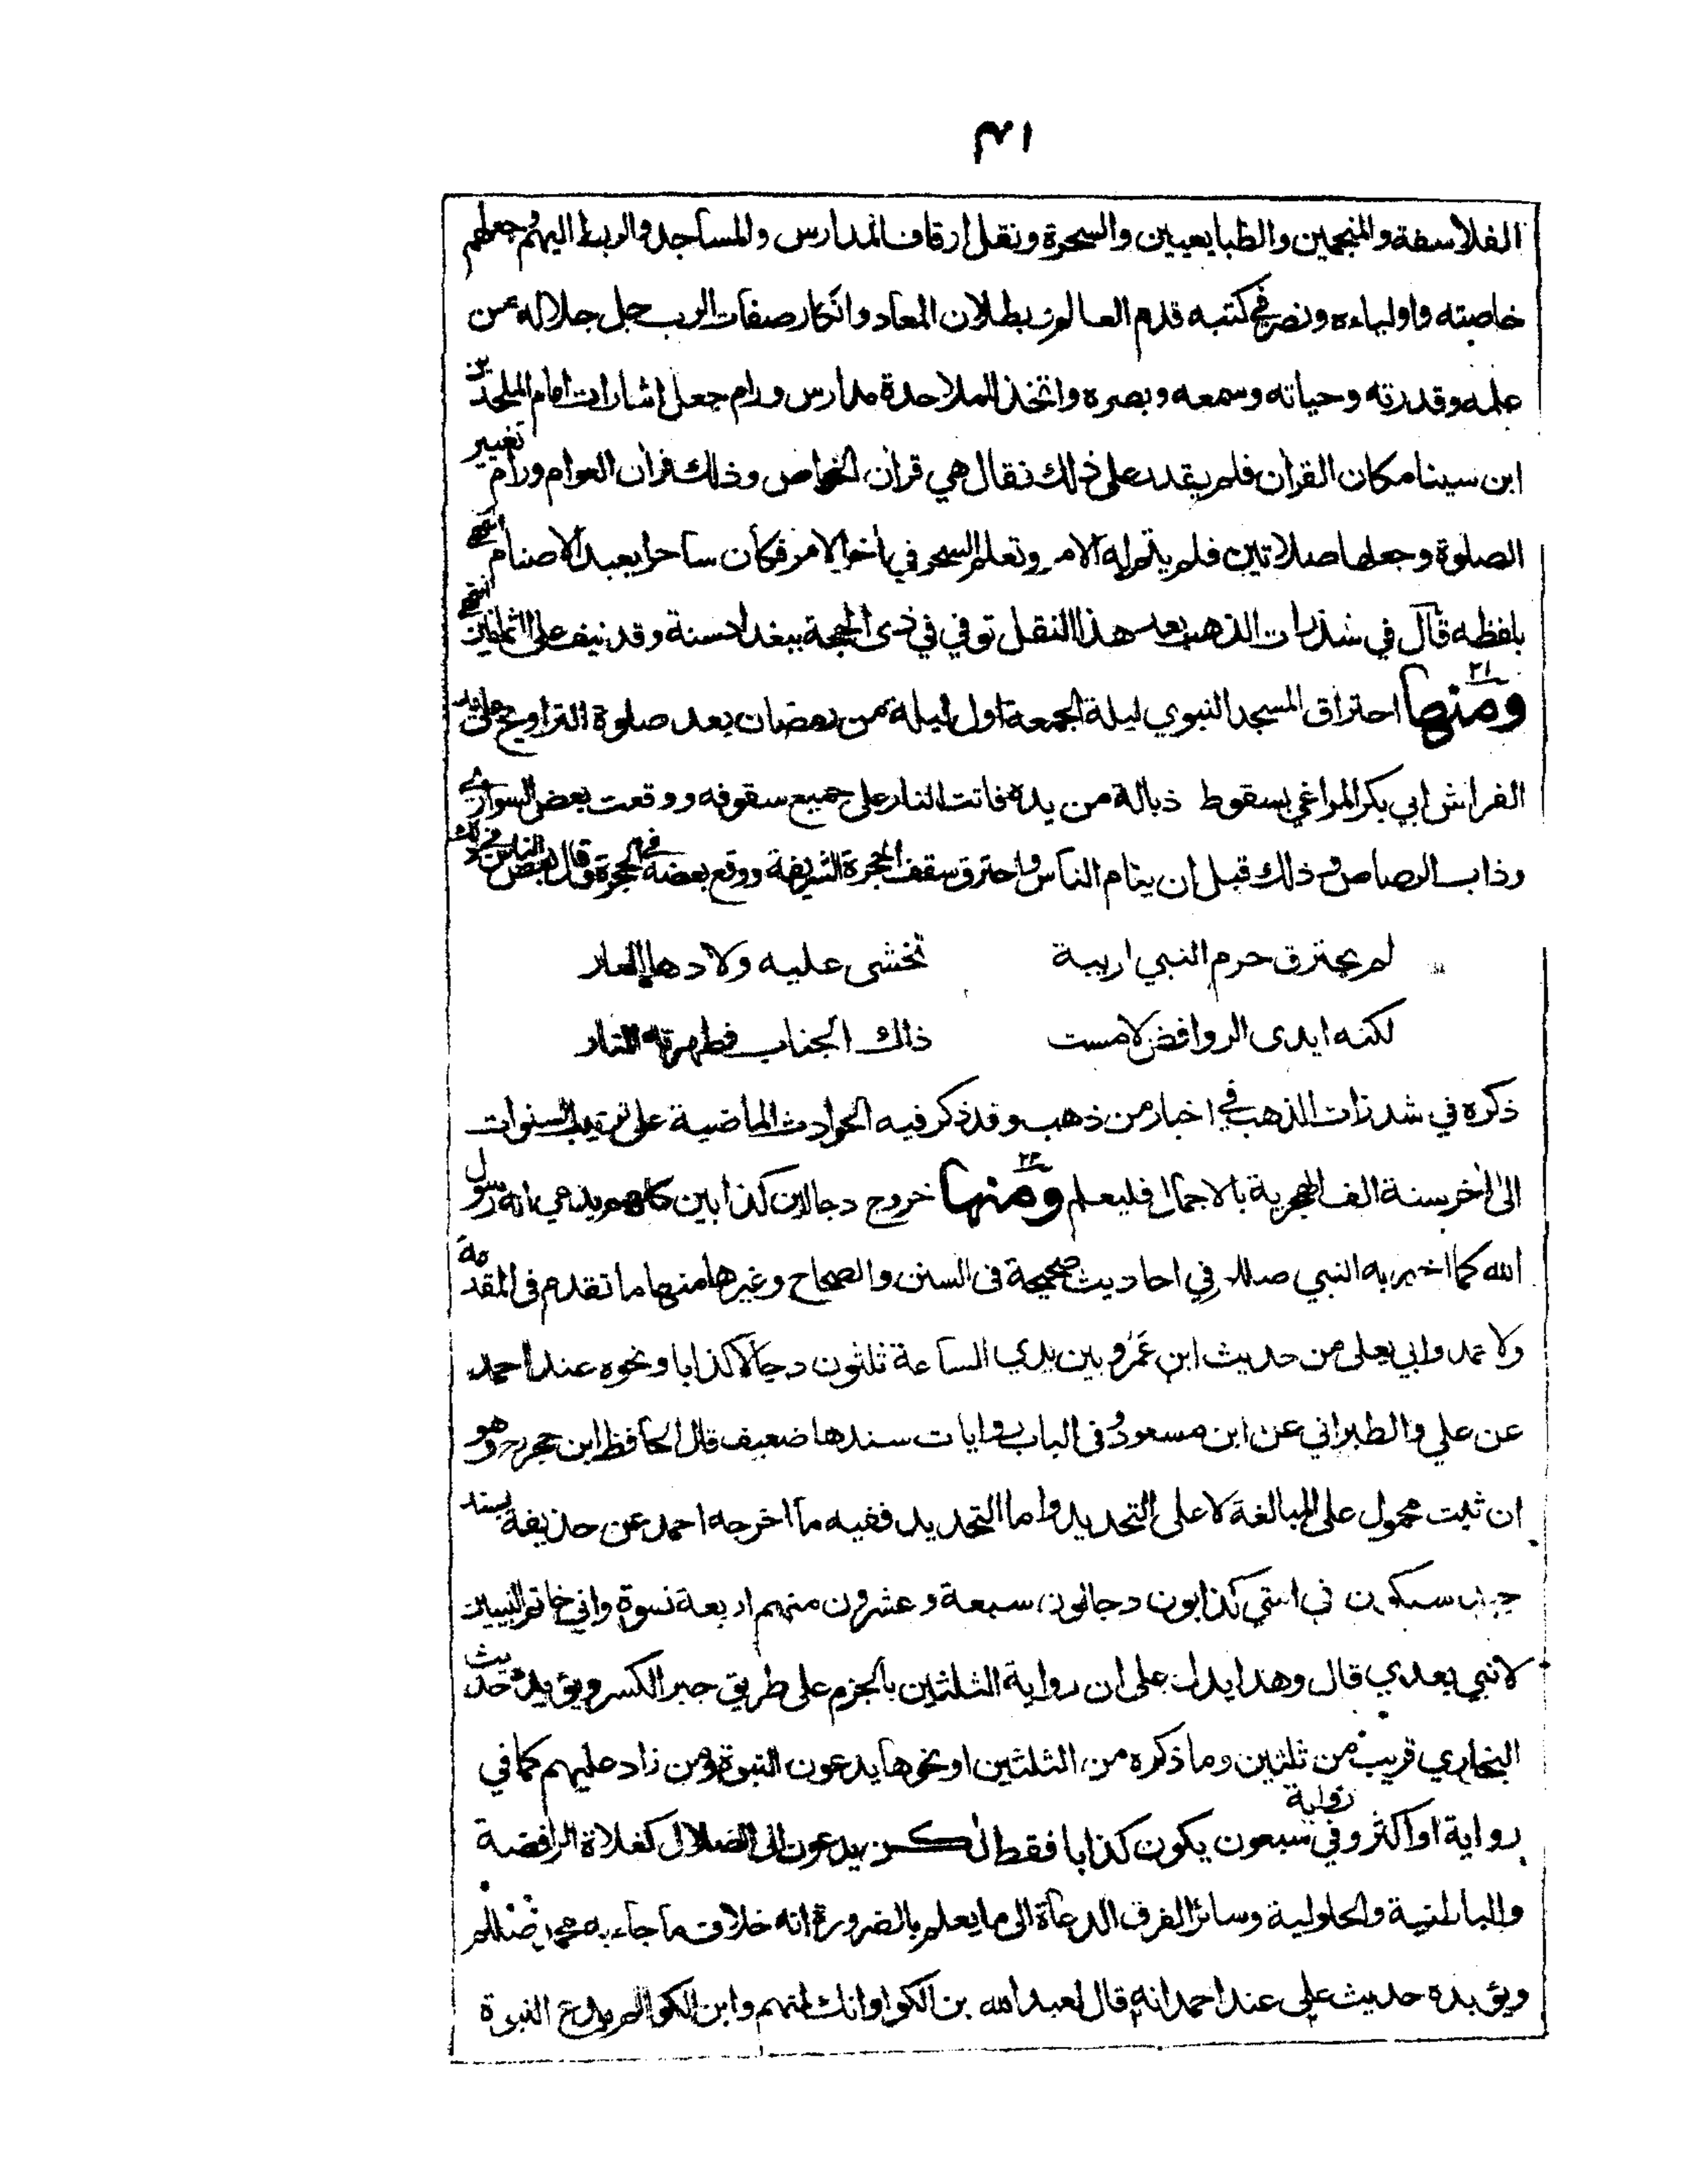 ٣١
الفلاسفة والمنجمين والطبايعيين والسحرة ونقل اوقاف المدارس والمساجد والربط اليهم وجعلهم
خاصته واولياءه ونصر في كتبه قدم العالم وبطلان المعاد وانكار صفات الرب جل جلاله من
علمه وقدرته وحياته وسمعه وبصره واتخذ للملاحدة مدارس ورام جعل اشارات امام الملحدين
ابن سينا مكان القران فلم يقدر على ذلك فقال هي قران الخواص وذلك قران العوام ورام تغيير
الصلوة وجعلها صلاتين فلم يتم له الامر وتعلم السحر في اخر الامر فكان ساحرا يعبد الاصنام انتهى
بلفظه قال في شذرات الذهب بعد هذا النقل توفي في ذي الحجة ببغداد سنة وقد نيف على الثمانين انتهى
٢١
ومنها احتراق المسجد النبوي ليلة الجمعة اول ليلة من رمضان بعد صلوة التراويح على يد
الفراش ابي بكر المراغي بسقوط ذبالة من يده فاتت النار على جميع سقوفه ووقعت بعض السواري
وذاب الرصاص وذلك قبل ان ينام الناس واحترق سقف الحجرة الشريفة ووقع بعضه في الحجرة وقال بعض الناس في ذلك
لم يحترق حرم النبي لريبة تخشى عليه ولا دهاه العار
لكنه ايدي الروافض لامست ذاك الجناب فطهرته النار
ذكره في شدرات الذهب في اخبار من ذهب وقد ذكر فيه الحوادث الماضية على ترتيب السنوات
الى اخر سنة الف الهجرية بالاجمال فليعلم ٢٢ ومنها خروج دجالين كذابين كلهم يدعي انه رسول
الله كما اخبر به النبي صللم في احاديث صحيحة في السنن والصحاح وغيرها منها ما تقدم في المقدمة
ولاحمد وابي يعلى من حديث ابن عمرو بين يدي الساعة ثلثون دجالا كذابا ونحوه عند احمد
عن علي والطبراني عن ابن مسعود وفي الباب روايات سندها ضعيف قال الحافظ ابن حجر رح وهو
ان ثبت محمول على المبالغة لا على التحديد واما التحديد ففيه ما اخرجه احمد عن حذيفة بسند
جيد سيكون في امتي كذابون دجالون سبعة وعشرون منهم اربعة نسوة واني خاتم النبيين
لا نبي بعدي قال وهذا يدل على ان رواية الثلثين بالجزم على طريق جبر الكسر ويؤيده حديث
البخاري قريب من ثلثين وما ذكره من الثلثين او نحوها يدعون النبوة ومن زاد عليهم كما في
رواية او اكثر وفي رواية سبعون يكون كذابا فقط لكن يدعون الى الضلال كغلاة الرافضة
والباطنية والحلولية وسائر الفرق الدعاة الى ما يعلم بالضرورة انه خلاف ما جاء به محمد صللم
ويؤيده حديث علي عند احمد انه قال لعبد الله بن الكوا وانك لمنهم وابن الكوا لم يدع النبوة